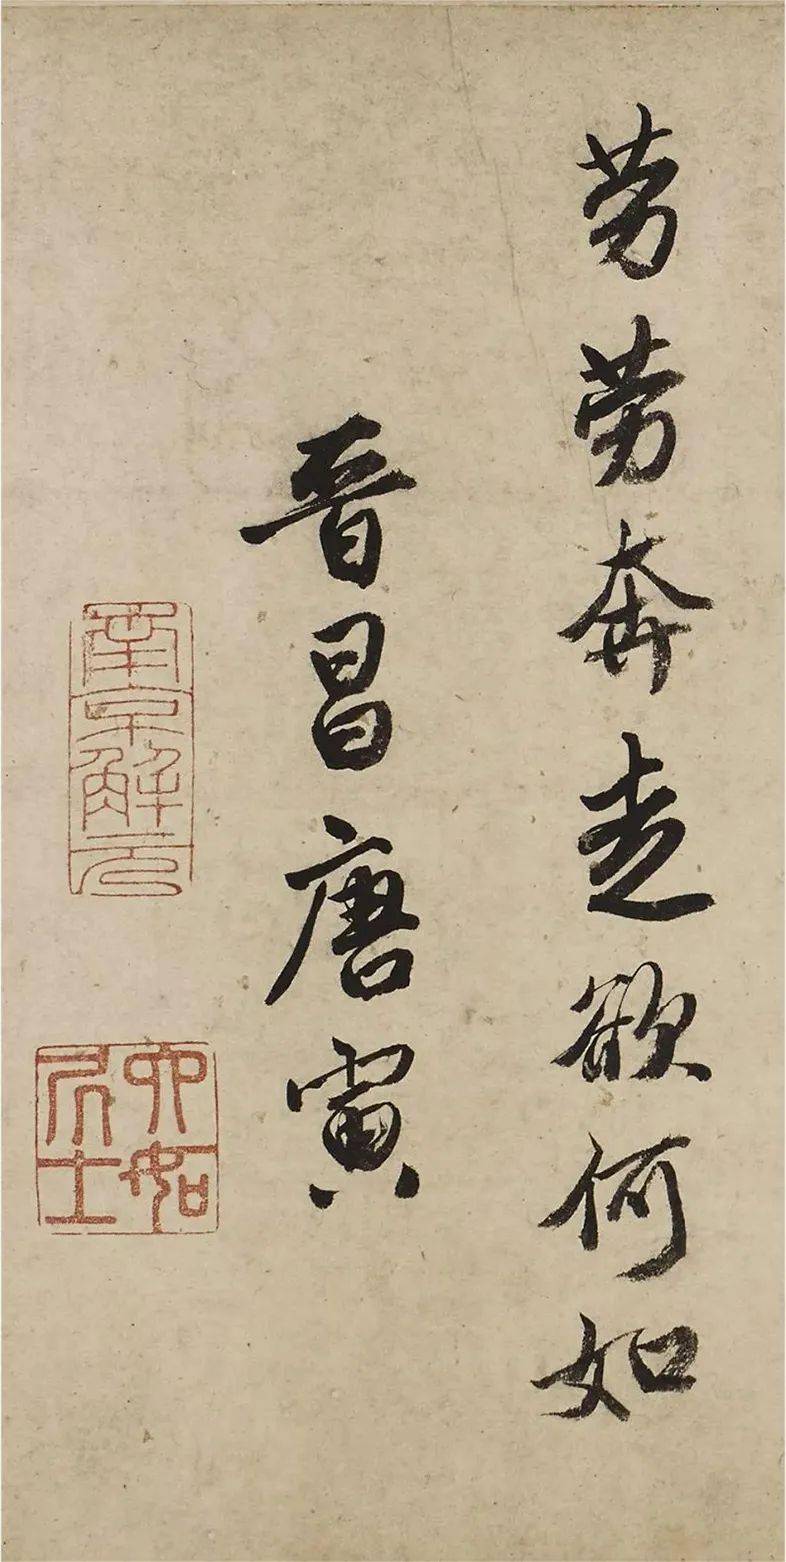 劳劳奔走欲何如
晋昌唐寅
南京解元
六如居士